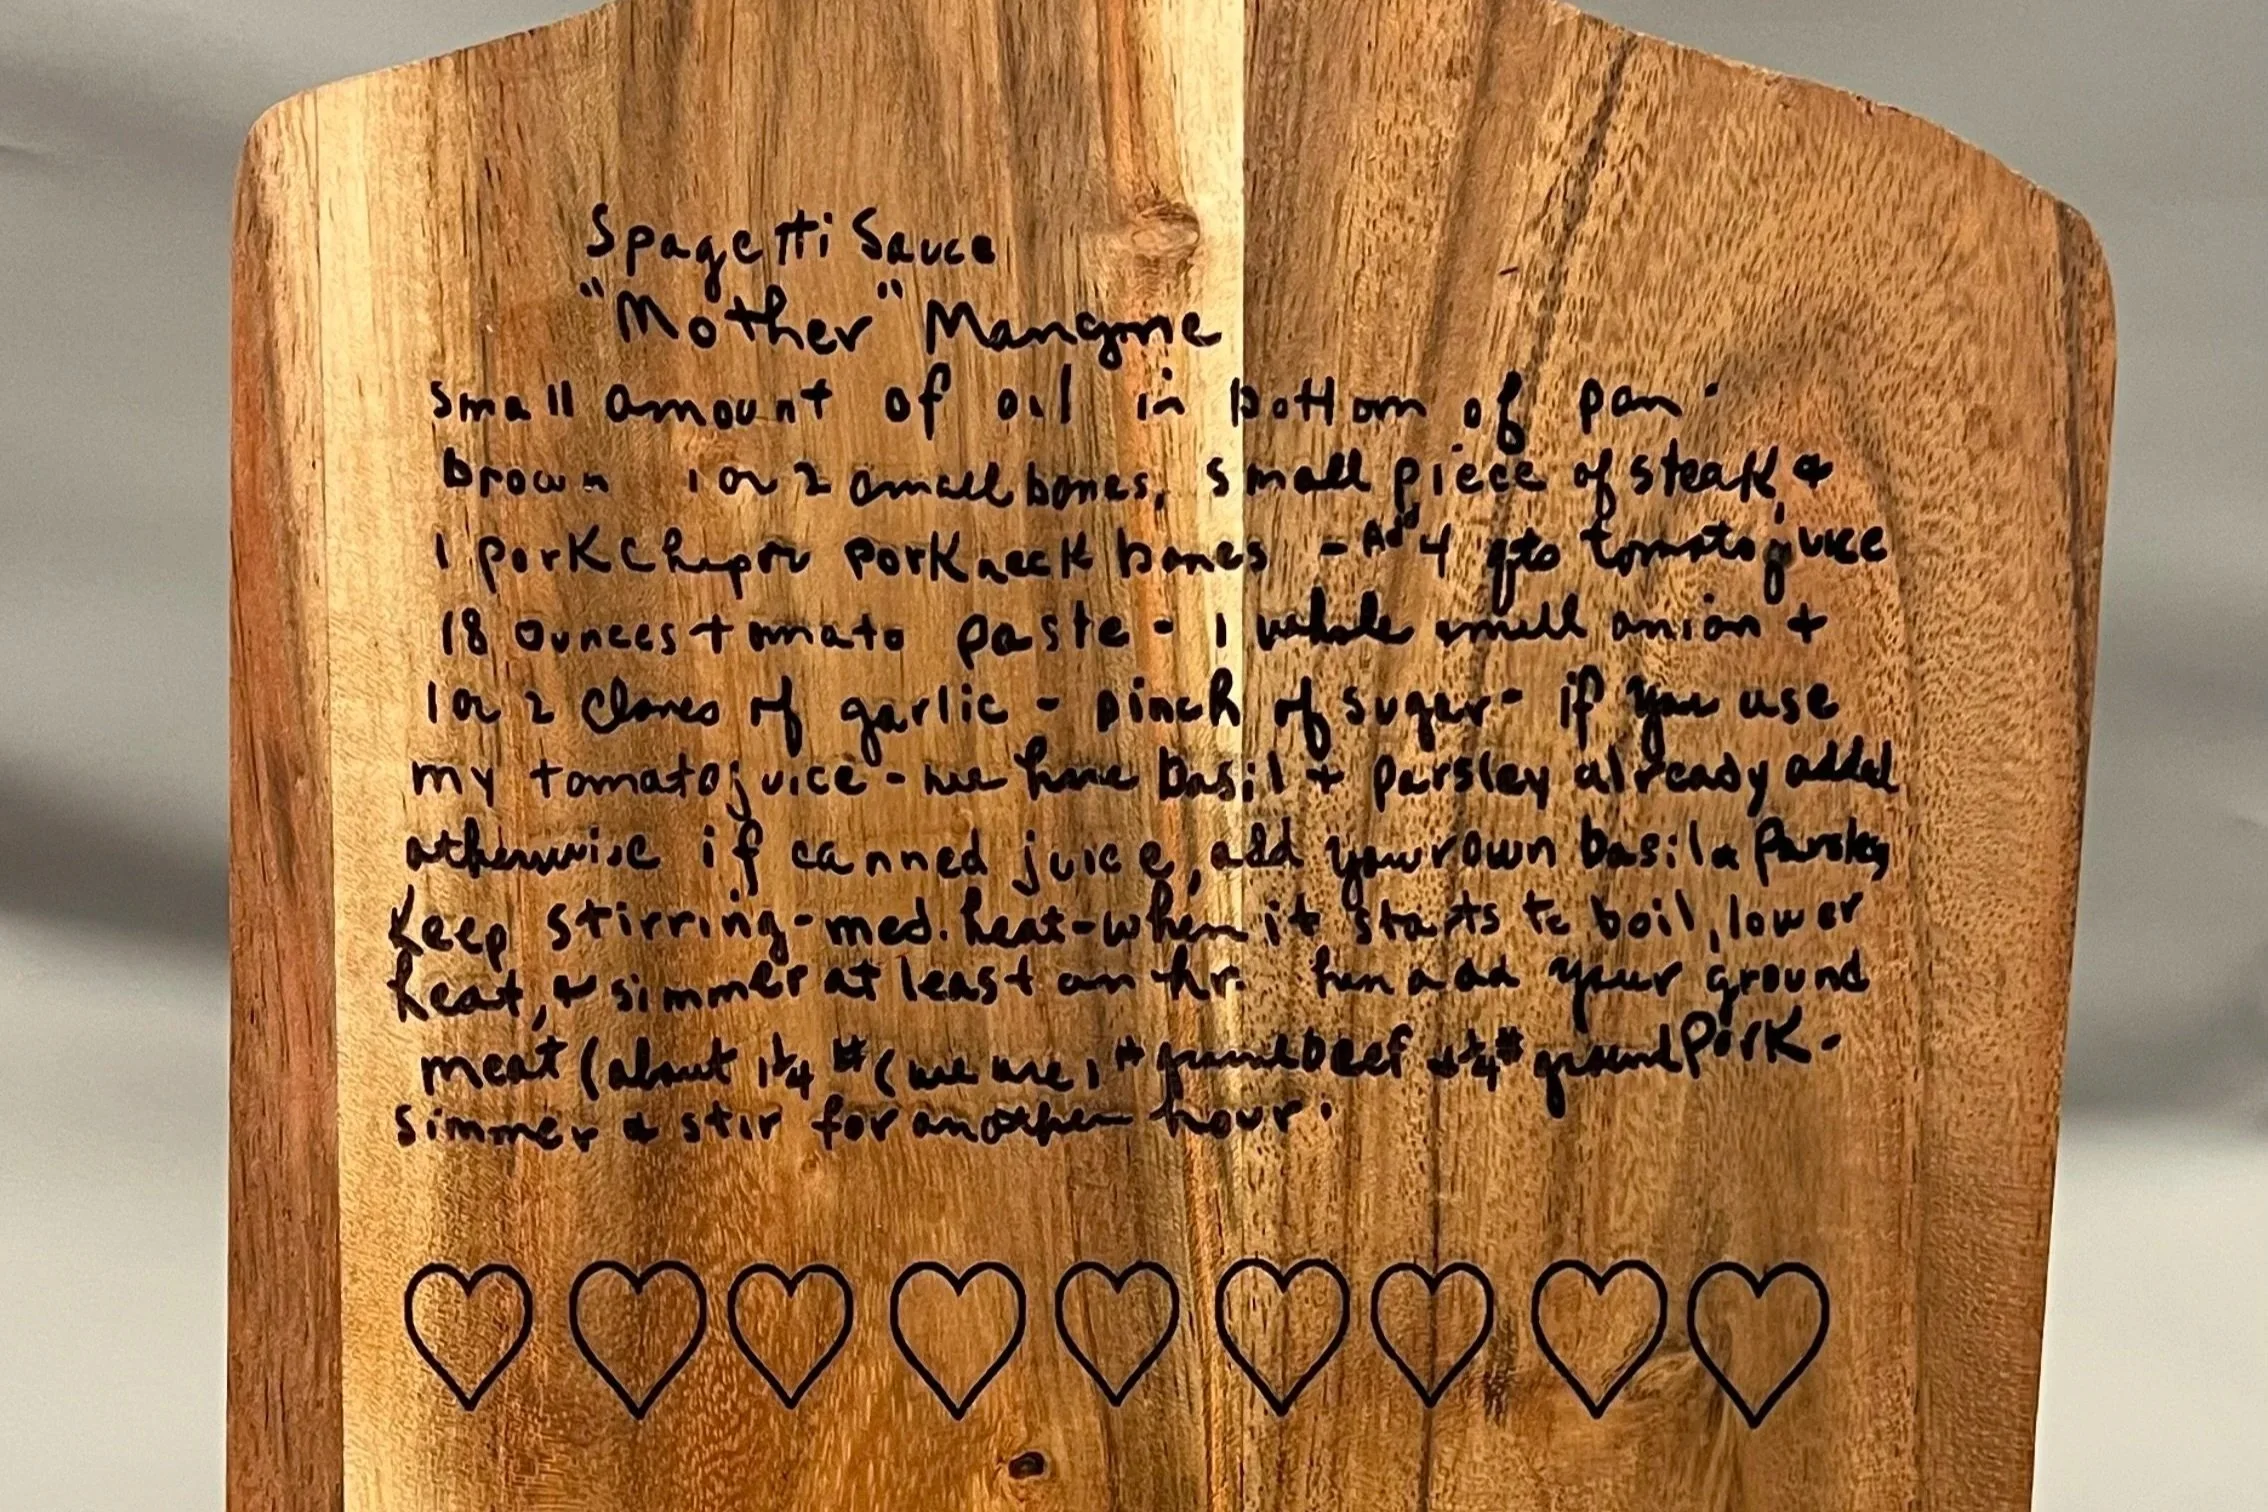 Spagetti Sauce
"Mother" Mangine
small amount of oil in bottom of pan.
brown 1 or 2 small bones, small piece of steak, &
1 pork chop or pork neck bones - Add 4 qts tomato juice
18 ounces tomato paste - 1 whole small onion +
1 or 2 cloves of garlic - pinch of sugar - if you use
my tomato juice - we have basil + parsley already added
otherwise if canned juice, add your own basil & Parsley
Keep stirring - med. heat - when it starts to boil, lower
heat, & simmer at least an hr. add your ground
meat (about 1 1/4 # (we use 1 # ground beef & 1/4 # ground Pork -
simmer & stir for another hour.